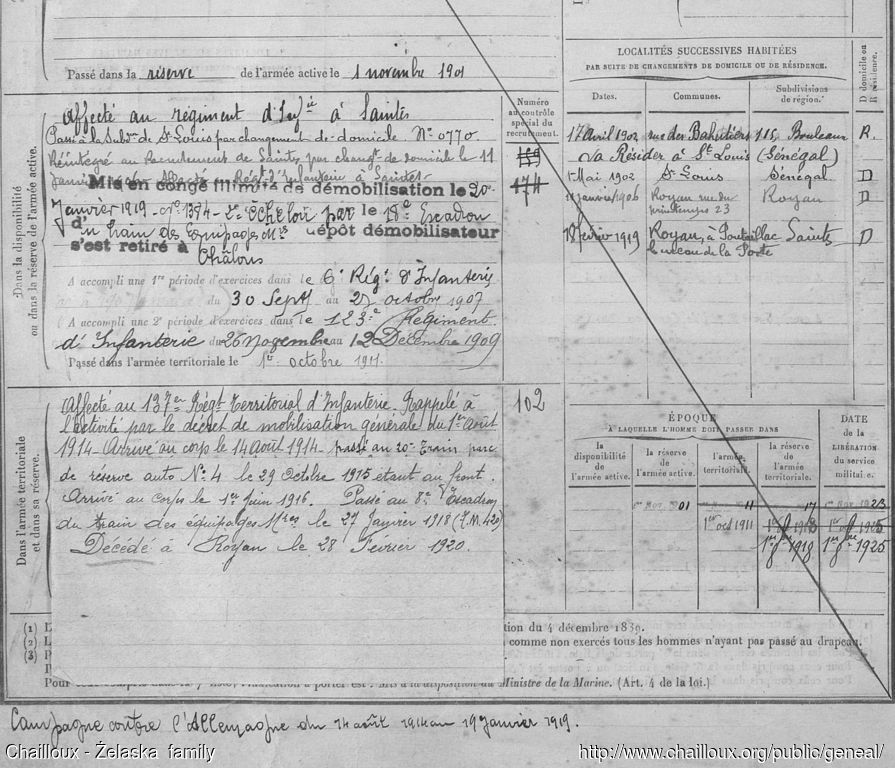 Passé dans la réserve de l'armée active le 1 novembre 1901
Dans la disponibilité
ou dans la réserve de l'armée active.
Affecté au régiment d'Infie à Saintes
Passé à la Subdon de St Louis par changement de domicile No 0770
Réintégré au Recrutement de Saintes par changt de domicile le 11
Janvier Affecté au Régt d'Infanterie à Saintes
Mis en congé illimité de démobilisation le 20
Janvier 1919 - No 1394 - 2e Echelon par le 18e Escadron
d'un train des Equipages Mres dépôt démobilisateur
s'est retiré à Châlons
A accompli une 1re période d'exercices dans le 6e Régt d'Infanterie
du 30 Sept au 27 octobre 1907
A accompli une 2e période d'exercices dans le 123e Régiment
d'Infanterie du 26 Novembre au 12 Décembre 1909
Passé dans l'armée territoriale le 1er octobre 1911
Numéro
au contrôle
spécial du
recrutement.
174
Dans l'armée territoriale
et dans sa réserve.
Affecté au 137e Régt Territorial d'Infanterie. Rappelé à
l'activité par le décret de mobilisation générale du 1er Août
1914 - Arrivé au corps le 14 août 1914 - passé au 20e Train parc
de réserve auto No 4 le 29 Octobre 1915 étant au front.
Arrivé au Corps le 1er Juin 1916. Passé au 8e Escadron
du train des équipages Mres le 27 Janvier 1918 (F.M. 420)
Décédé à Royan le 28 Février 1920.
102
LOCALITÉS SUCCESSIVES HABITÉES
PAR SUITE DE CHANGEMENTS DE DOMICILE OU DE RÉSIDENCE.
Dates. Communes. Subdivisions de région.
D domicile ou
R résidence.
17 Avril 1902 rue des Bahutiers 115 Bordeaux R.
Va Résider à St Louis (Sénégal)
1 Mai 1902 St Louis Sénégal D
11 janvier 1906 Royan rue du Royan D
printemps 23
18 février 1919 Royan, à Pontaillac Saintes D
bureau de la Poste
ÉPOQUE
À LAQUELLE L'HOMME DOIT PASSER DANS
la disponibilité de l'armée active.
la réserve de l'armée active.
l'armée territoriale.
la réserve de l'armée territoriale.
DATE
de la
LIBÉRATION
du service
militaire.
1er Nov. 1901 11 17 1er Nov 1923
1er oct 1911 1er 1918 1er 1925
1er 1918 1er 1925
(1)
(2)
(3)
tion du 4 décembre 1889.
comme non exercés tous les hommes n'ayant pas passé au drapeau.
Ministre de la Marine. (Art. 4 de la loi.)
Campagne contre l'Allemagne du 14 août 1914 au 19 janvier 1919.
Chailloux - Želaska family
http://www.chailloux.org/public/geneal/